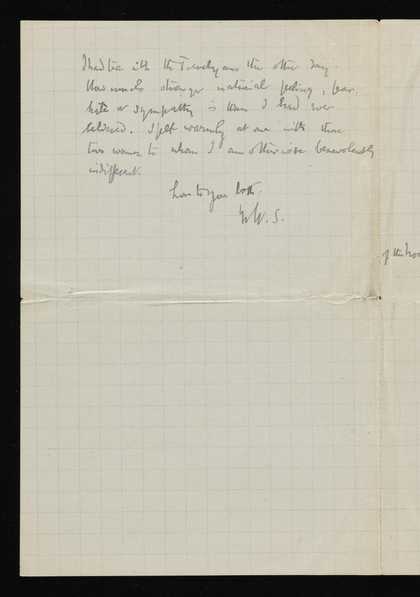 I had tea with the Trevelyans the other day.
How much stronger national feeling, fear,
hate or sympathy is than I had ever
believed. I felt warmly at one with those
two women to whom I am otherwise benevolently
indifferent.
Love to you both.
of the